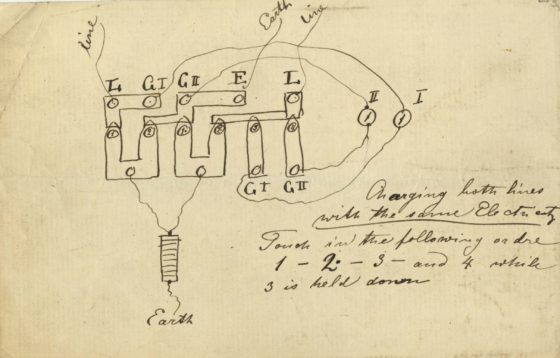 line
Earth
line
L GI GII E L
II I
1 2 1 2 3 4
GI GII
Charging both lines
with the same Electricity
Touch in the following ordre
1 - 2 - 3 - and 4 while
3 is held down
Earth